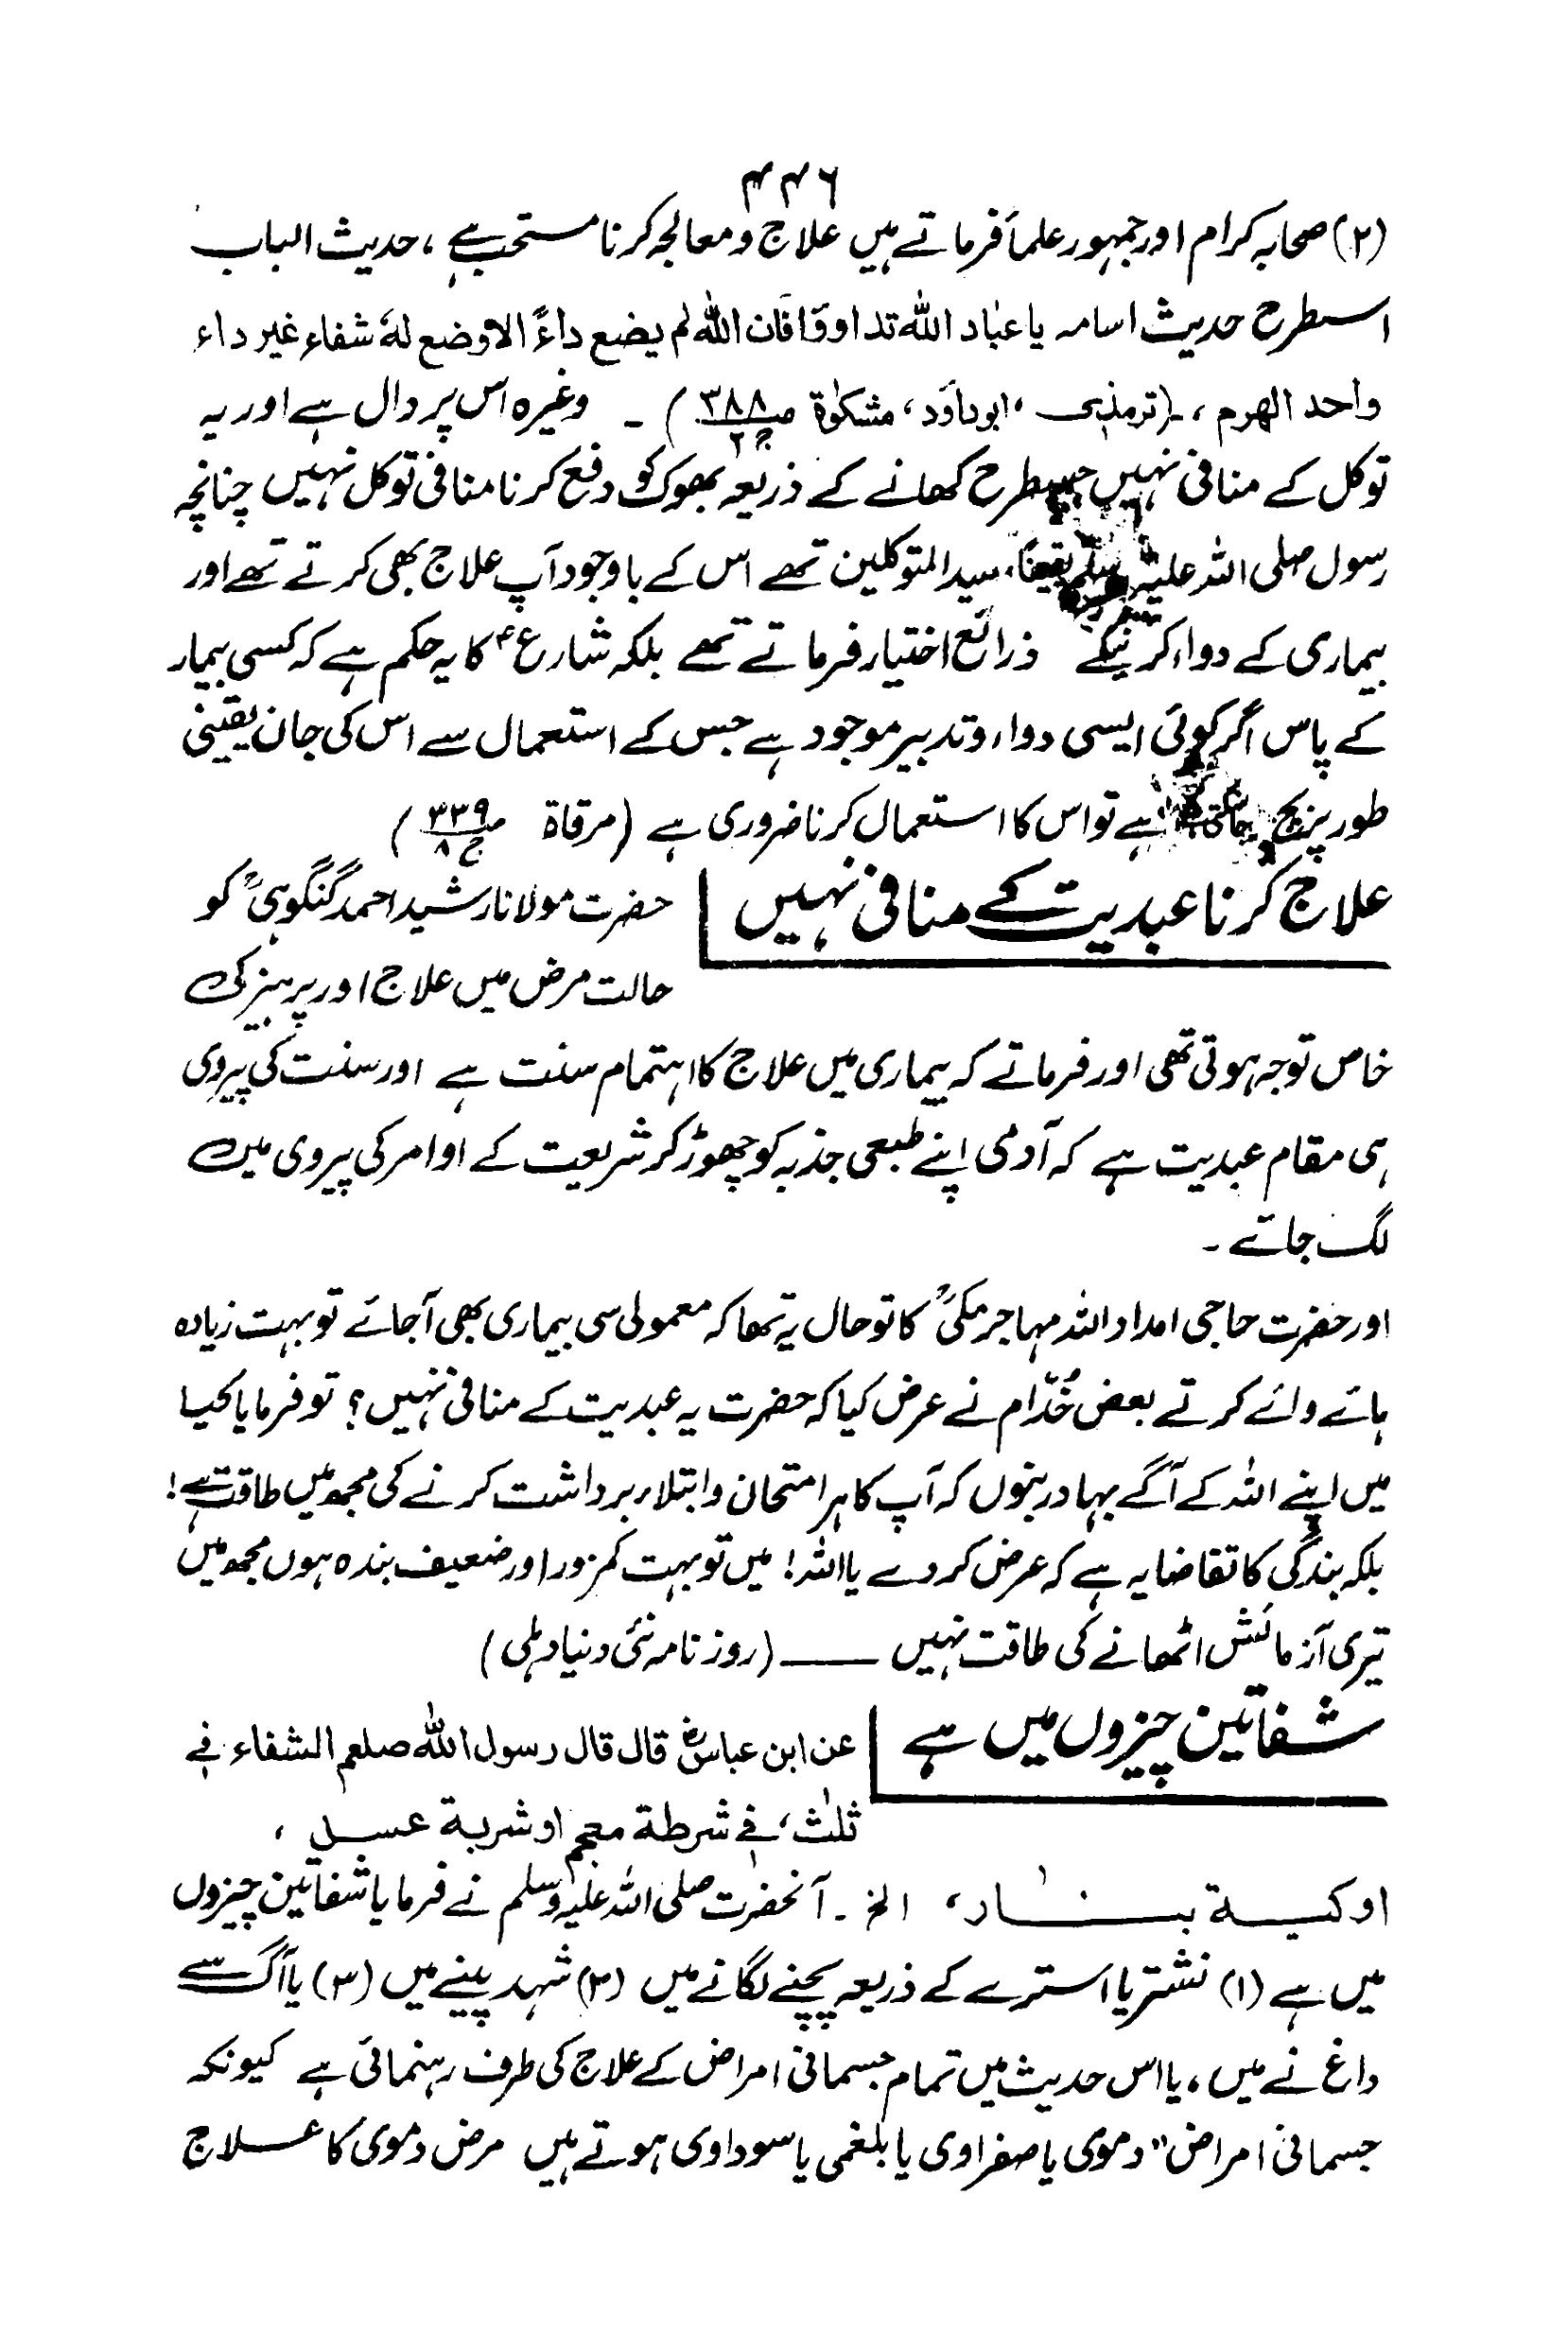 ۴۴۶
(۲) صحابہ کرام اور جمہور علمأ فرماتے ہیں علاج ومعالجہ کرنا مستحب ہے ، حدیث الباب
اسطرح حدیث اسامہ یا عباد اللہ تداووا فان اللہ لم یضع داءً الا وضع لہٗ شفاء غیر داء
واحد الھرم ، (ترمذی ، ابوداؤد، مشکوٰۃ صـ۳۸۸ ج۲) ـ وغیرہ اس پر دال ہے اور یہ
توکل کے منافی نہیں جسطرح کھانے کے ذریعہ بھوک کو دفع کرنا منافی توکل نہیں چنانچہ
رسول صلی اللہ علیہ وسلم یقیناً سید المتوکلین تھے اس کے باوجود آپ علاج بھی کرتے تھے اور
بیماری کے دواء کرنیکے ذرائع اختیار فرماتے تھے بلکہ شارع ؑ کا یہ حکم ہے کہ کسی بیمار
کے پاس اگر کوئی ایسی دواء وتدبیر موجود ہے جس کے استعمال سے اس کی جان یقینی
طور پر بچ جاسکتی ہے تو اس کا استعمال کرنا ضروری ہے (مرقاۃ صـ۳۳۹ ج۸)
علاج کرنا عبدیت کے منافی نہیں
حضرت مولانا رشید احمد گنگوہیؒ کو
حالت مرض میں علاج اور پرہیز کی
خاص توجہ ہوتی تھی اور فرماتے کہ بیماری میں علاج کا اہتمام سنت ہے اور سنت کی پیروی
ہی مقام عبدیت ہے کہ آدمی اپنے طبعی جذبہ کو چھوڑ کر شریعت کے اوامر کی پیروی میں
لگ جائے ـ
اور حضرت حاجی امداد اللہ مہاجر مکیؒ کا تو حال یہ تھا کہ معمولی سی بیماری بھی آجائے تو بہت زیادہ
ہائے وائے کرتے بعض خُدّام نے عرض کیا کہ حضرت یہ عبدیت کے منافی نہیں؟ تو فرمایا کیا
میں اپنے اللہ کے آگے بہادر بنوں کہ آپ کا ہر امتحان وابتلاء برداشت کرنے کی مجھ میں طاقت ہے!
بلکہ بندگی کا تقاضا یہ ہے کہ عرض کردے یا اللہ! میں تو بہت کمزور اور ضعیف بندہ ہوں مجھ میں
تیری آزمائش اٹھانے کی طاقت نہیں ـــــ (روزنامہ نئی دنیا دہلی)
شفا تین چیزوں میں ہے
عن ابن عباسؓ قال قال رسول اللہ صلعم الشفاء فی
ثلٰث، فی شرطة محجم او شربة عسل ،
او کیة بنار، الخ ـ آنحضرت صلی اللہ علیہ وسلم نے فرمایا شفا تین چیزوں
میں ہے (۱) نشتر یا استرے کے ذریعہ پچپنے لگانے میں (۲) شہد پینے میں (۳) یا آگ سے
داغ نے میں ، یا اس حدیث میں تمام جسمانی امراض کے علاج کی طرف رہنمائی ہے کیونکہ
جسمانی امراض" دموی یا صفراوی یا بلغمی یا سوداوی ہوتے ہیں مرض دموی کا علاج